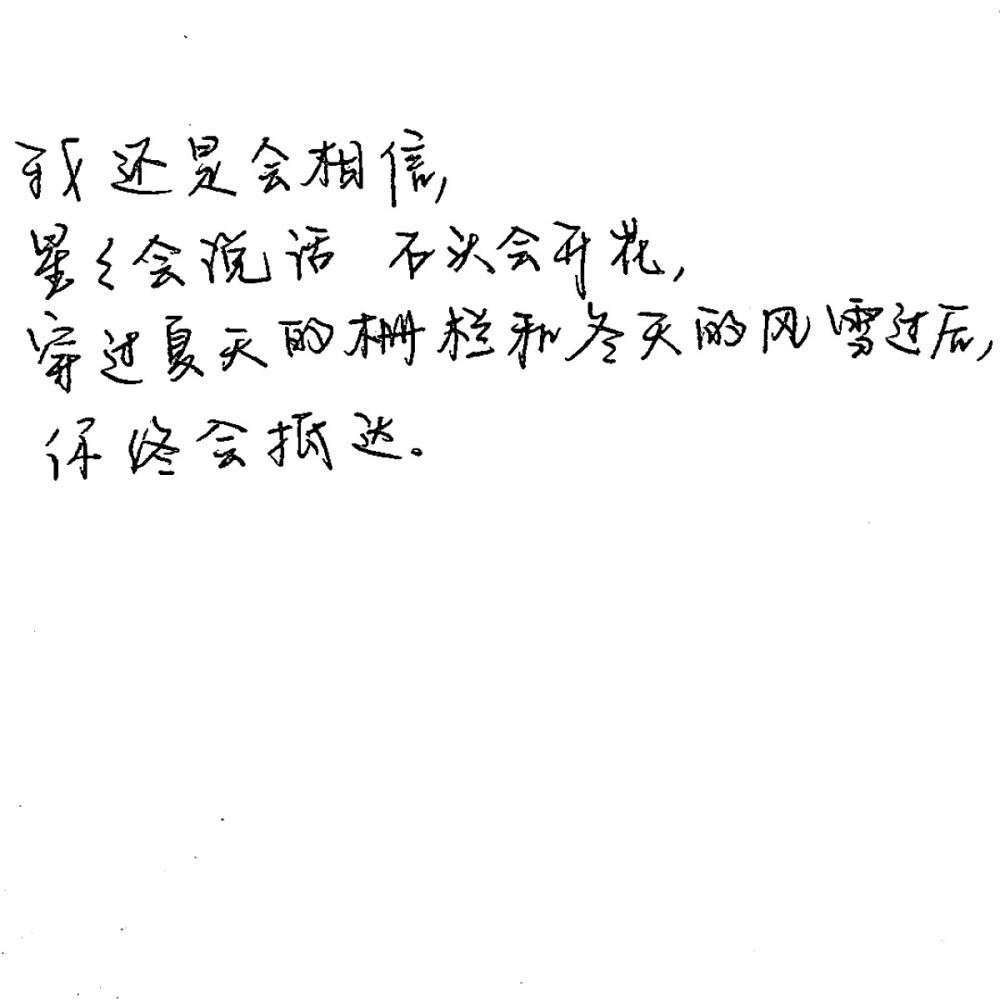 我还是会相信,
星々会说话 石头会开花,
穿过夏天的栅栏和冬天的风雪过后,
你终会抵达。